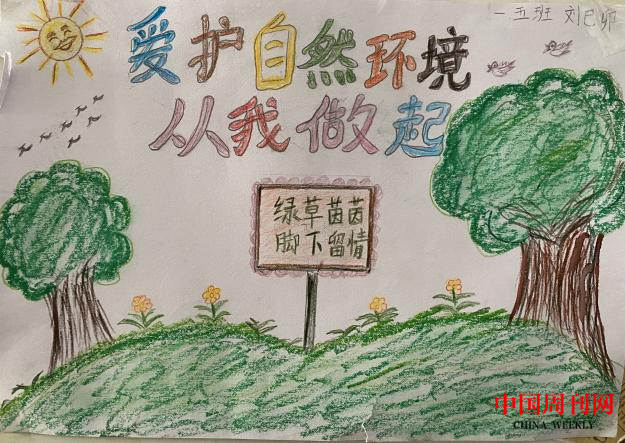 一五班 刘已卯
爱护自然环境
从我做起
绿草茵茵
脚下留情
中国周刊网
CHINA WEEKLY